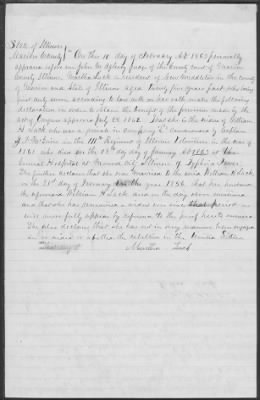 State of Illinois
Marion County } On this 10 day of February AD 1863 personally
appeared before me John W. judge of the County court of Marion
County Illinois Martha Lack a resident of in the county
of Marion and State of Illinois aged Twenty five years past who being
first duly sworn according to law doth on her oath make the following
declaration in order to obtain the benefit of the provision made by the
act of Congress approved July 14 1862 That she is the widow of William
H Lack who was a private in company commanded by Captain
in the 111th Regiment of Illinois Volunteers in the war of
1861 who died on the day of January AD 1863 at the
General Hospital at Mound City Illinois of Typhoid Fever
She further declares that she was married to the said William H Lack
on the 21st day of in the year 1856 that her husband
the aforesaid William H Lack died on the day above mentioned
and that she has remained a widow ever since that period as
will more fully appear by reference to the proof hereto annexed
She also declares that she has not in any manner been engaged
in or aided or abetted the rebellion in the United States
Martha Lack